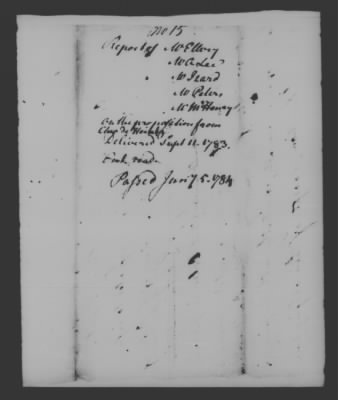 No 15
Report of Mr Ellery
Mr A Lee
Mr Izard
Mr Peters
Mr McHenry
on the proposition from
Delivered Sept 11. 1783.
read.
Passed Jany 5. 1784